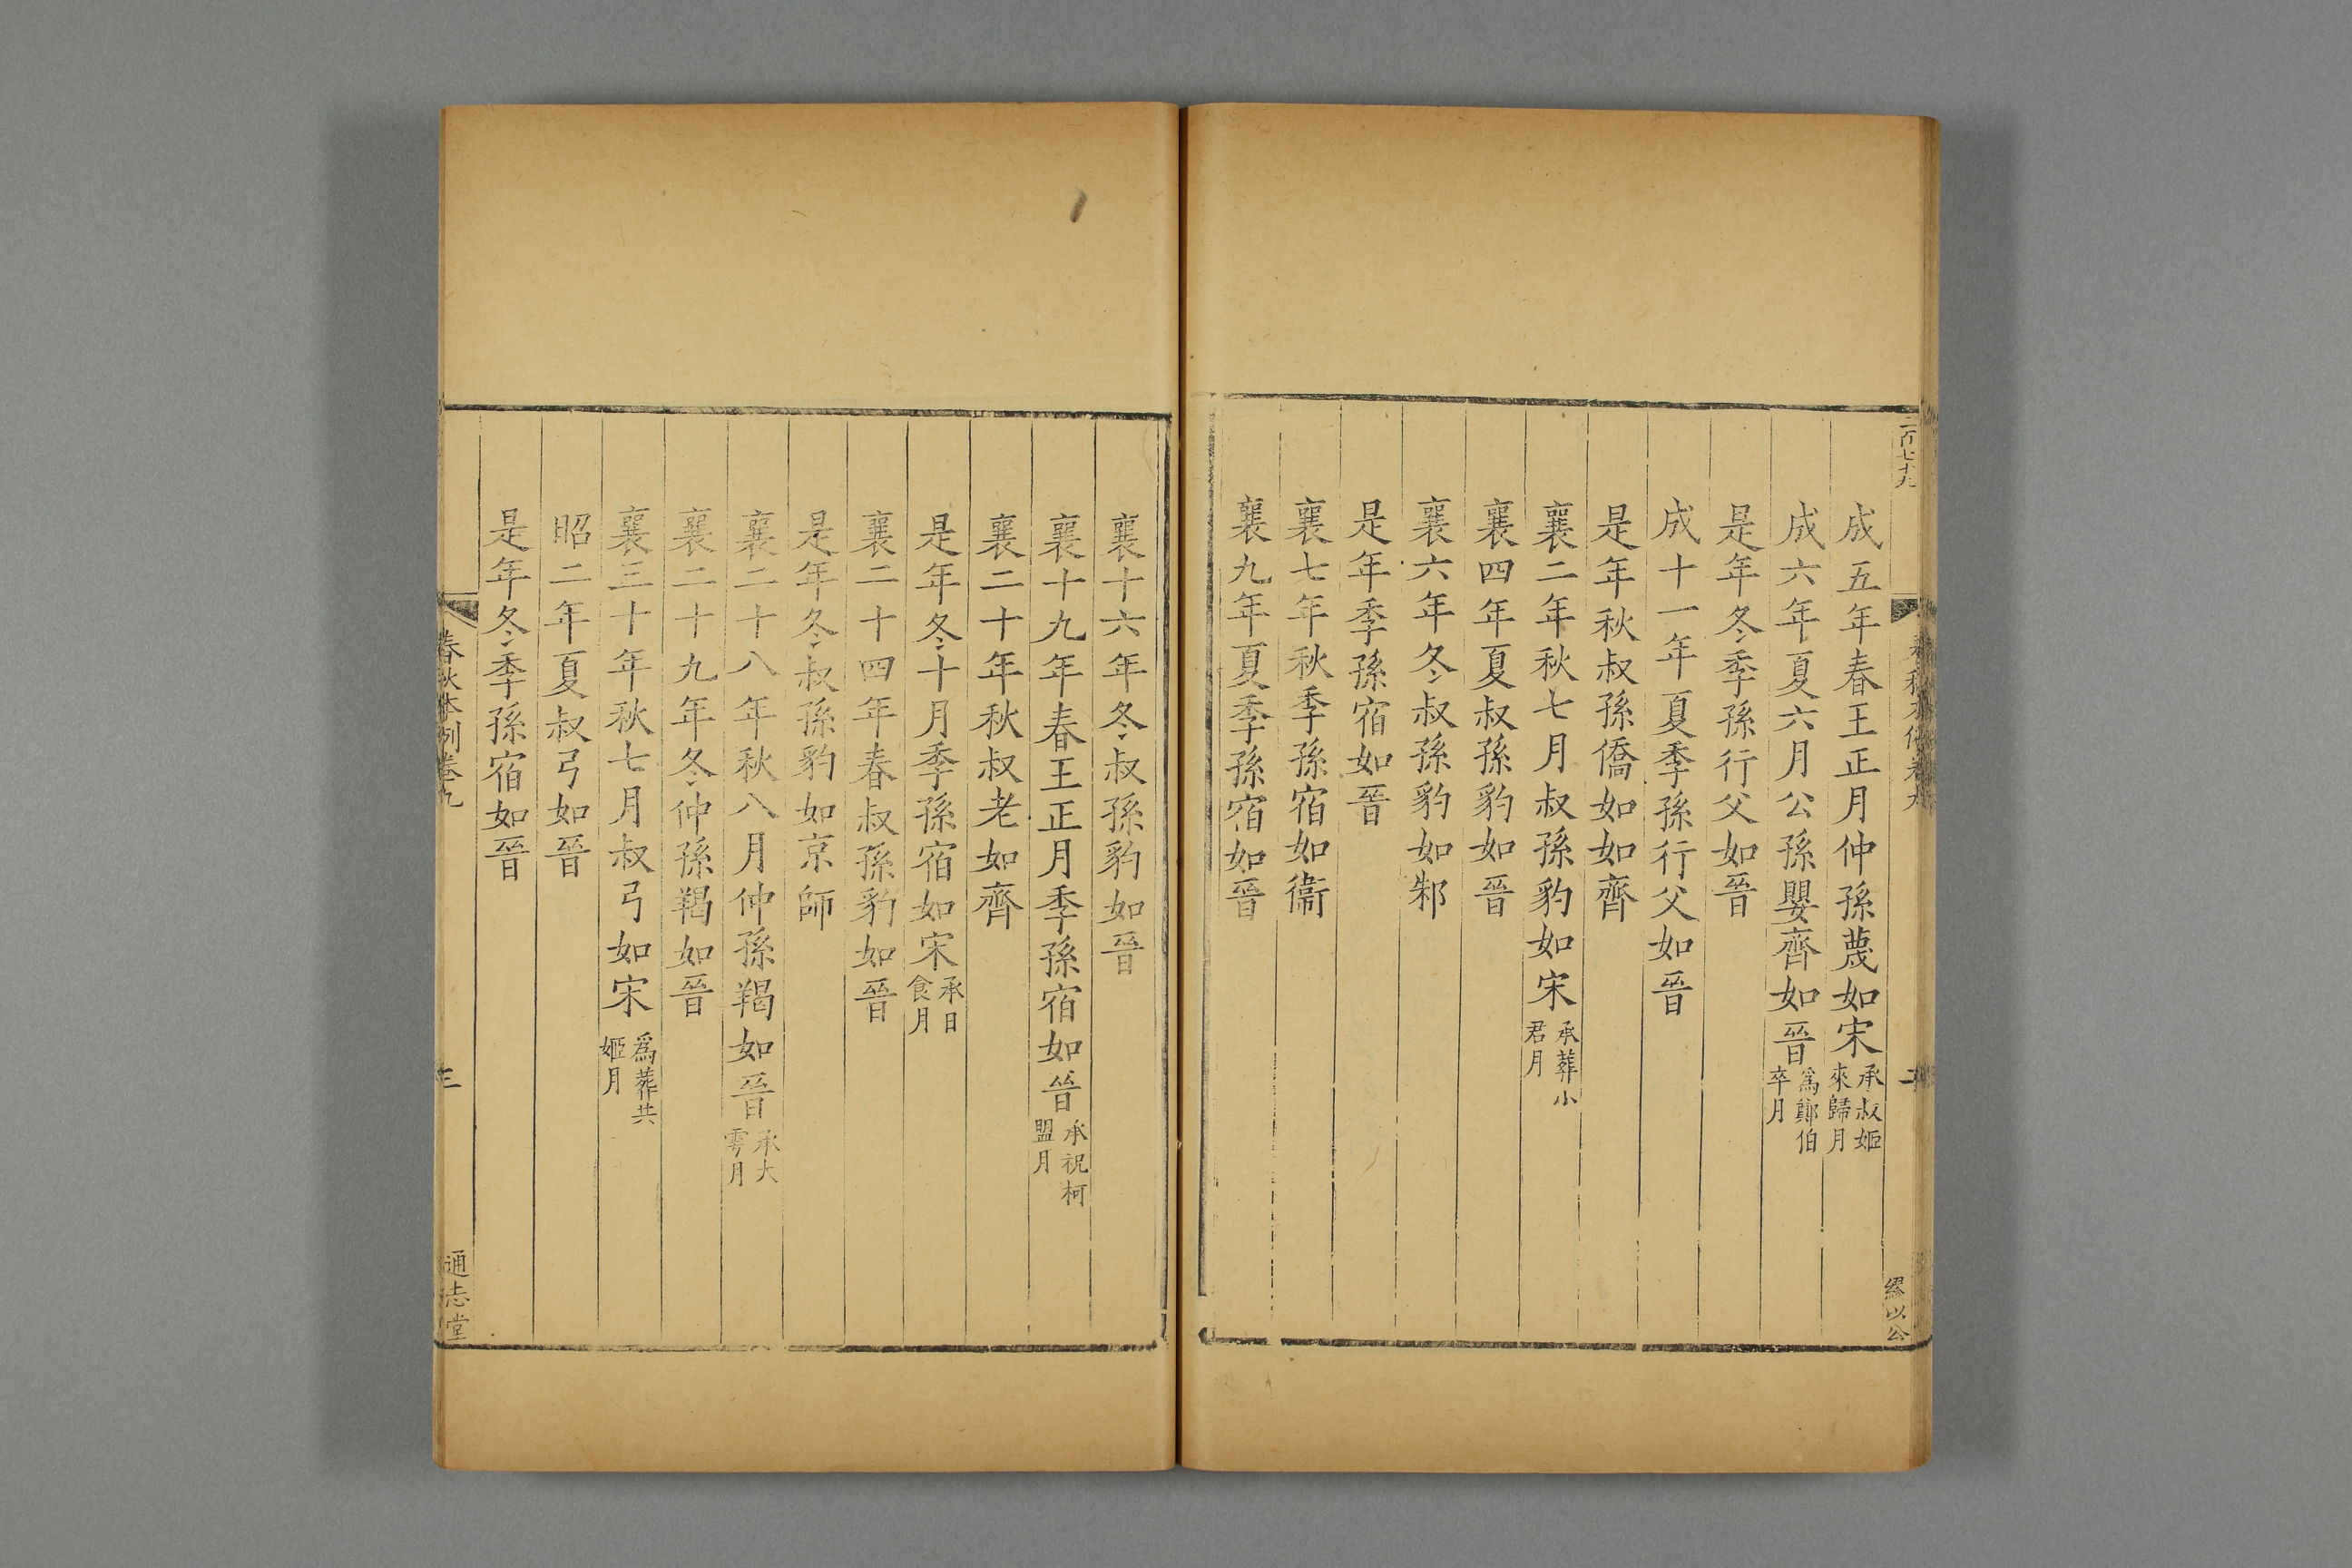 二百七十九
春秋本例卷九
二
繆以公
成五年春王正月仲孫蔑如宋承叔姬來歸月
成六年夏六月公孫嬰齊如晉為鄭伯卒月
是年冬季孫行父如晉
成十一年夏季孫行父如晉
是年秋叔孫僑如如齊
襄二年秋七月叔孫豹如宋承葬小君月
襄四年夏叔孫豹如晉
襄六年冬叔孫豹如邾
是年季孫宿如晉
襄七年秋季孫宿如衞
襄九年夏季孫宿如晉
襄十六年冬叔孫豹如晉
襄十九年春王正月季孫宿如晉承祝柯盟月
襄二十年秋叔老如齊
是年冬十月季孫宿如宋承日食月
襄二十四年春叔孫豹如晉
是年冬叔孫豹如京師
襄二十八年秋八月仲孫羯如晉承大雩月
襄二十九年冬仲孫羯如晉
襄三十年秋七月叔弓如宋為葬共姬月
昭二年夏叔弓如晉
是年冬季孫宿如晉
春秋本例卷九
三
通志堂